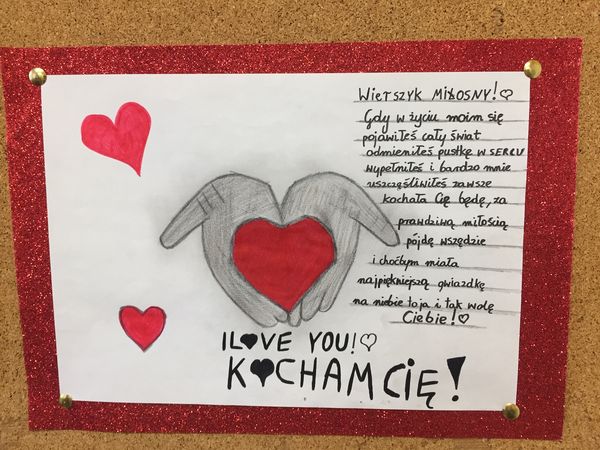 Wierszyk MIŁOSNY!♡
Gdy w życiu moim się
pojawiłeś cały świat
odmieniłeś pustkę w SERCU
wypełniłeś i bardzo mnie
uszczęśliwiłeś zawsze
kochała Cię będę, za
prawdziwą miłością
pójdę wszędzie
i choćbym miała
najpiękniejszą gwiazdkę
na niebie to ja i tak wolę
Ciebie!♡
I LOVE YOU!♡
KOCHAM CIĘ!